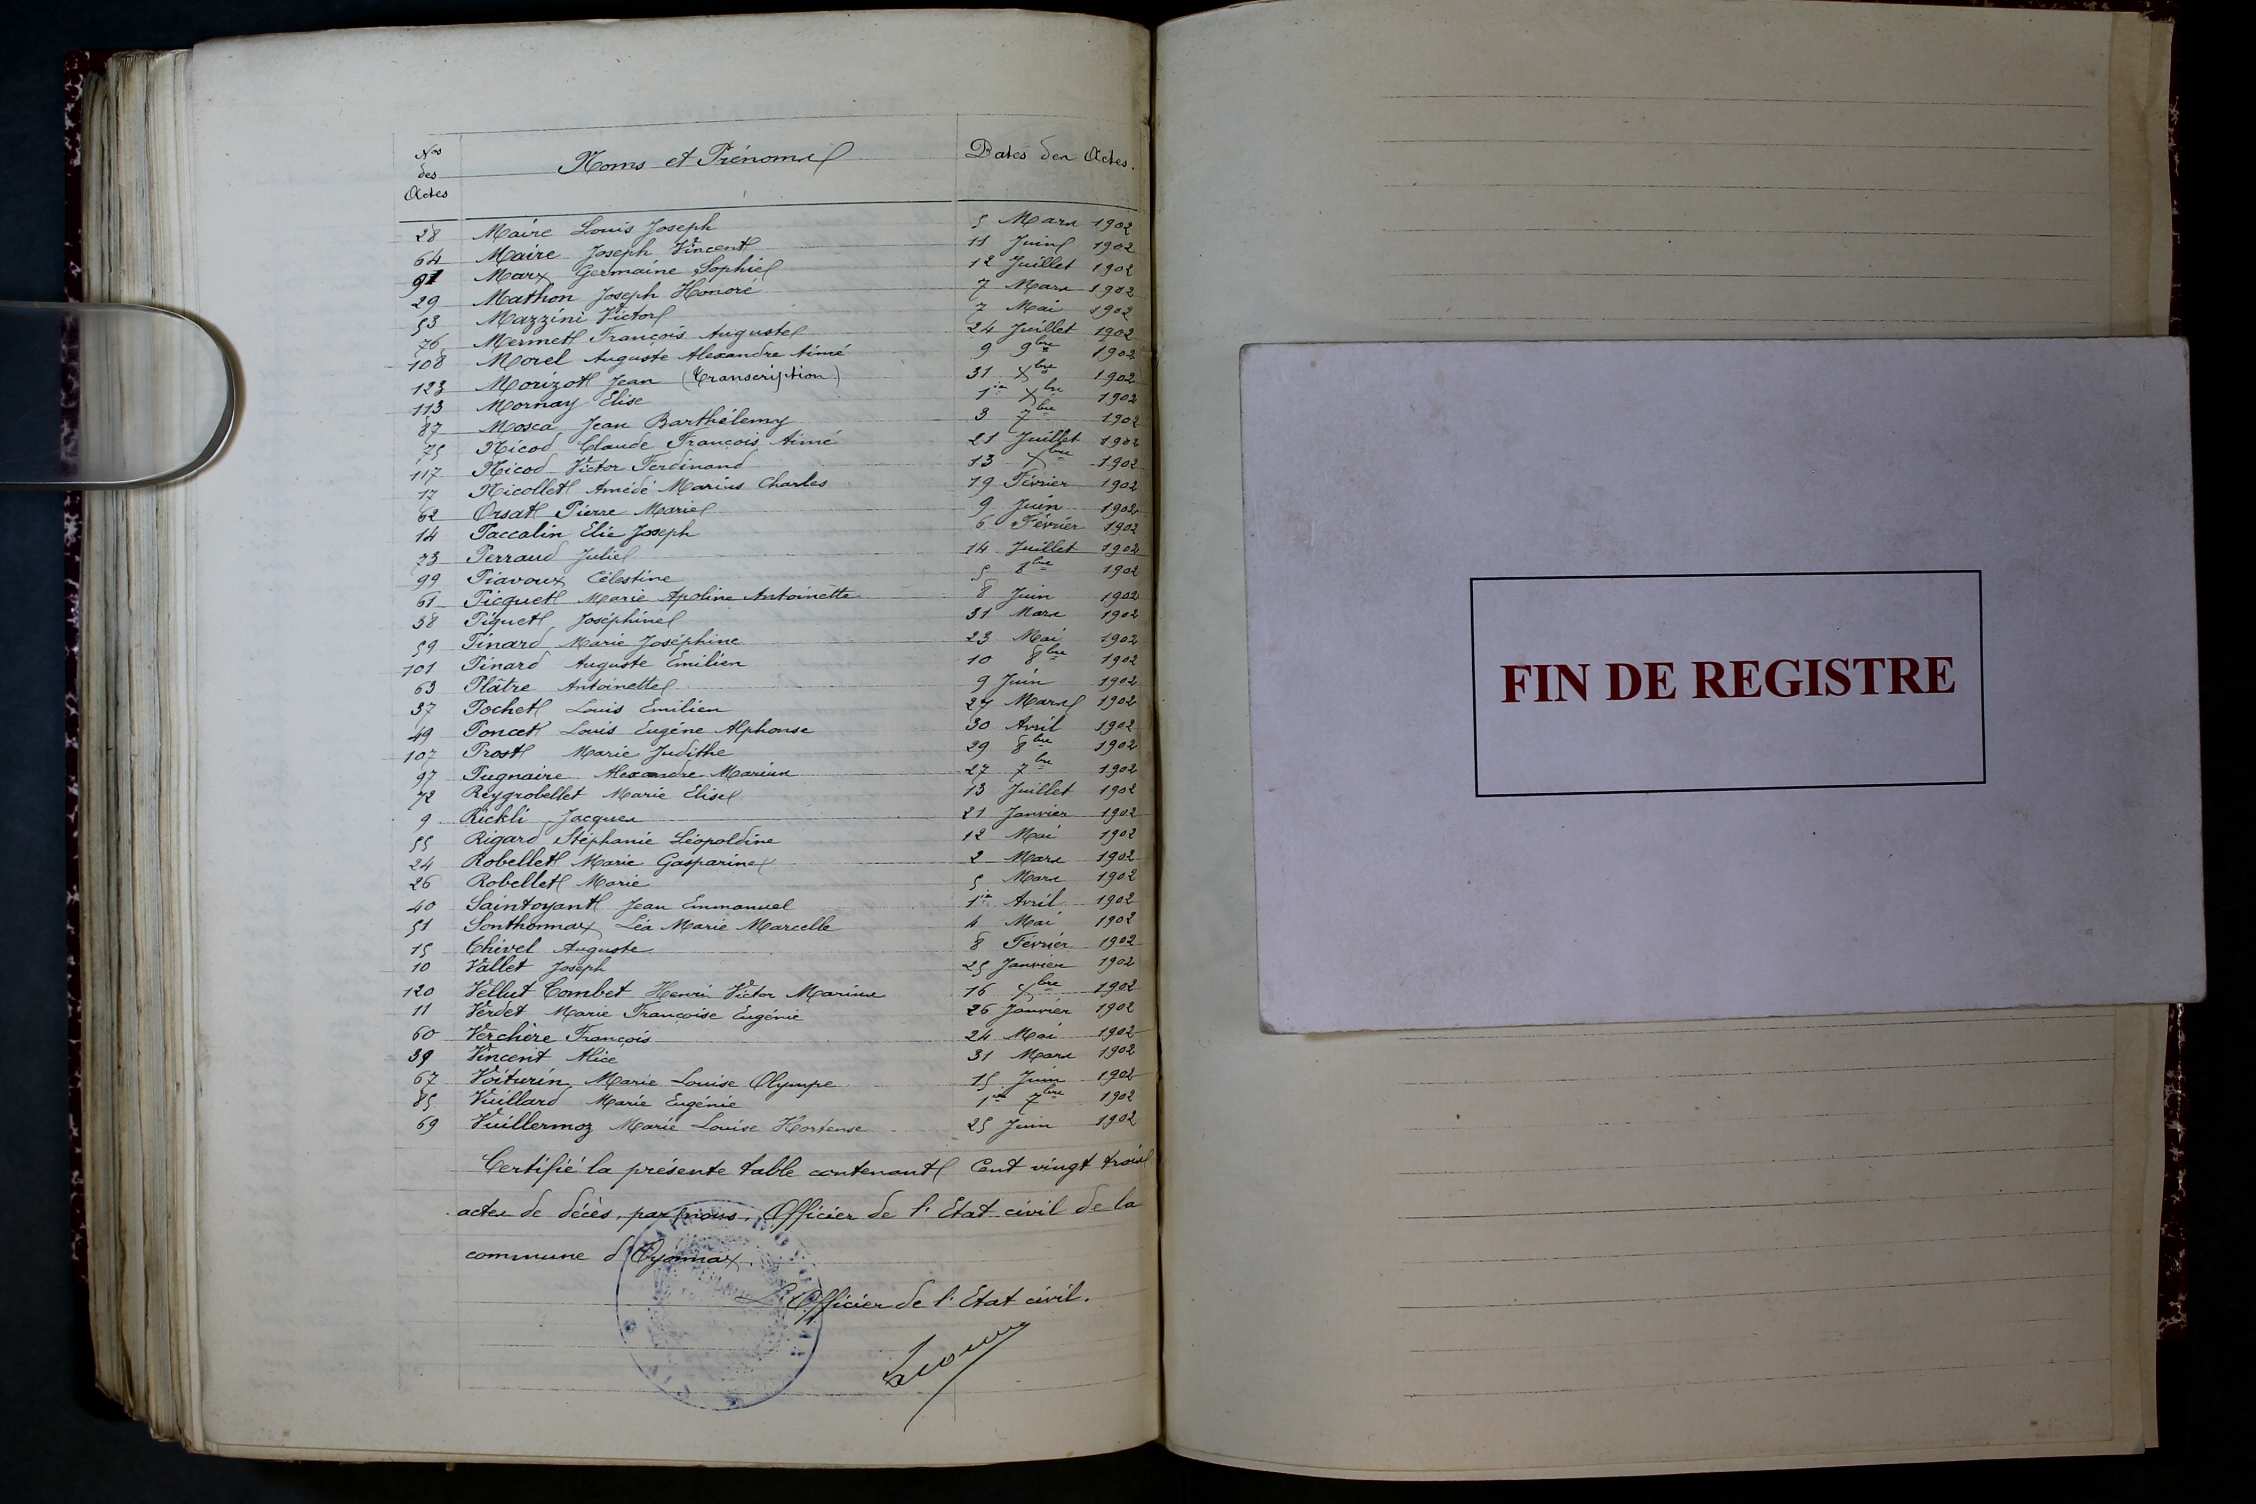 Nos
des
Actes
Noms et Prénoms
Dates des Actes.
28 Maire Louis Joseph 5 Mars 1902
64 Maire Joseph Vincent 11 Juin 1902
91 Marx Germaine Sophie 12 Juillet 1902
29 Mathon Joseph Honoré 7 Mars 1902
53 Mazzini Victor 7 Mai 1902
76 Mermet François Auguste 24 Juillet 1902
108 Morel Auguste Alexandre Aimé 9 9bre 1902
123 Morizot Jean (Transcription) 31 Xbre 1902
113 Mornay Elise 1er Xbre 1902
87 Mosca Jean Barthélemy 3 7bre 1902
75 Nicod Claude François Aimé 21 Juillet 1902
117 Nicod Victor Ferdinand 13 Xbre 1902
17 Nicollet Amédé Marius Charles 19 Février 1902
62 Orsat Pierre Marie 9 Juin 1902
14 Paccalin Elie Joseph 6 Février 1902
73 Perraud Julie 14 Juillet 1902
99 Piavoux Célestine 5 8bre 1902
61 Picquet Marie Apoline Antoinette 8 Juin 1902
38 Piquet Joséphine 31 Mars 1902
59 Pinard Marie Joséphine 23 Mai 1902
101 Pinard Auguste Emilien 10 8bre 1902
63 Plâtre Antoinette 9 Juin 1902
37 Pochet Louis Emilien 27 Mars 1902
49 Poncet Louis Eugène Alphonse 30 Avril 1902
107 Prost Marie Judithe 29 8bre 1902
97 Pugnaire Alexandre Marius 27 7bre 1902
72 Reygrobellet Marie Elise 13 Juillet 1902
9 Rickli Jacques 21 Janvier 1902
55 Rigard Stéphanie Léopoldine 12 Mai 1902
24 Robellet Marie Gasparine 2 Mars 1902
26 Robellet Marie 5 Mars 1902
40 Saintoyant Jean Emmanuel 1er Avril 1902
51 Sonthonnax Léa Marie Marcelle 4 Mai 1902
15 Thivel Auguste 8 Février 1902
10 Vallet Joseph 25 Janvier 1902
120 Vellut Combet Henri Victor Marius 16 Xbre 1902
11 Verdet Marie Françoise Eugénie 26 Janvier 1902
60 Verchère François 24 Mai 1902
39 Vincent Alice 31 Mars 1902
67 Voiturin Marie Louise Olympe 15 Juin 1902
85 Vuillard Marie Eugénie 1er 7bre 1902
69 Vuillermoz Marie Louise Hortense 25 Juin 1902
Certifié la présente table contenant Cent vingt trois
actes de décès, par nous, Officier de l'Etat civil de la
commune d'Oyonnax.
L'Officier de l'Etat civil.
FIN DE REGISTRE